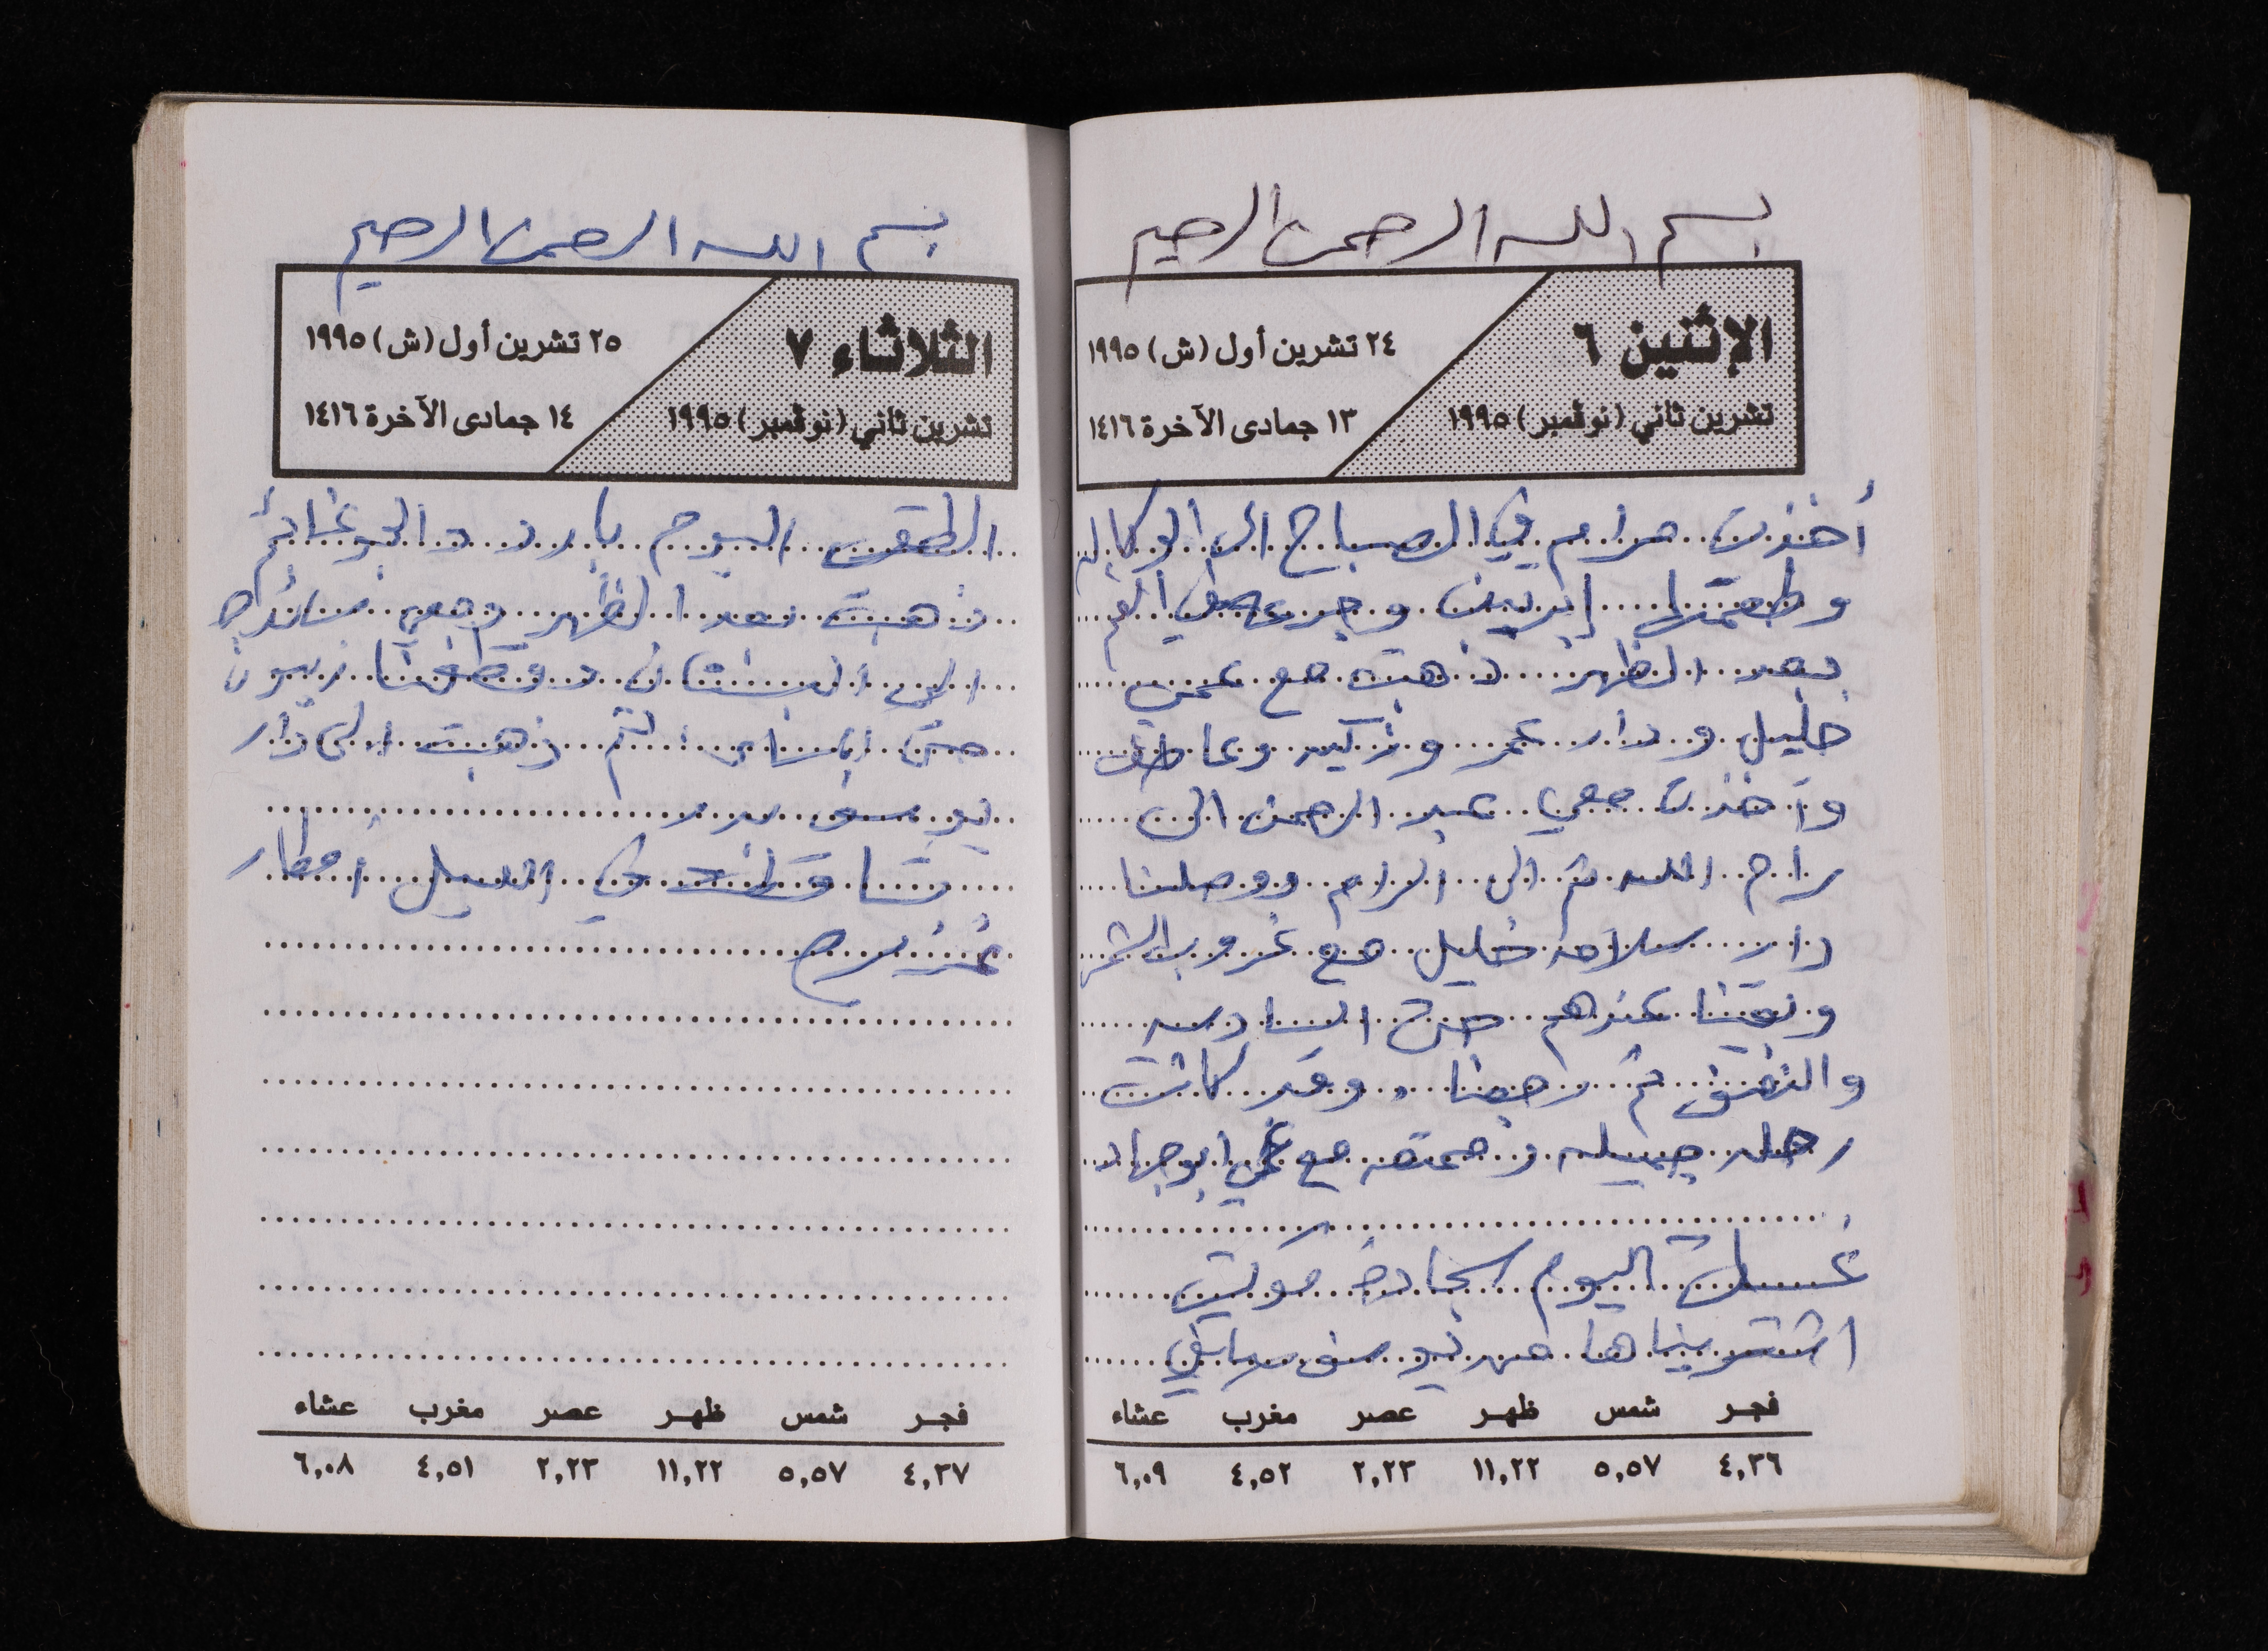 بسم الله الرحمن الرحيم
الإثنين ٦
تشرين ثاني (نوڤمبر) ١٩٩٥
٢٤ تشرين أول (ش) ١٩٩٥
١٣ جمادى الآخرة ١٤١٦
أخذت مرام في الصباح الى الوكاله
وطعمتها إبرتين وجرعه في الفم
بعد الظهر ذهبت مع عمي
خليل ودار عمر وزكيه وعاطف
وأخذت معي عبد الرحمن الى
رام الله ثم الى الرام ووصلنا
دار سلامه خليل مع غروب الشمس
وبقينا عندهم حتى السادسه
والنصف ثم رجعنا . وقد كانت
رحله جميله وممتعه مع عمي ابو جهاد
غسلت اليوم سجاده موكيت
اشتريناها من يوسف
فجر شمس ظهر عصر مغرب عشاء
٤,٣٦ ٥,٥٧ ١١,٢٢ ٢,٢٣ ٤,٥٢ ٦,٠٩
بسم الله الرحمن الرحيم
الثلاثاء ٧
تشرين ثاني (نوڤمبر) ١٩٩٥
٢٥ تشرين أول (ش) ١٩٩٥
١٤ جمادى الآخرة ١٤١٦
الطقس اليوم بارد والجو غائم
ذهبت بعد الظهر ومعي
الى البستان وقطفنا زيتون
حتى المساء ثم ذهبت الى دار
يوسف
تساقطت في الليل أمطار
غزيره
فجر شمس ظهر عصر مغرب عشاء
٤,٣٧ ٥,٥٧ ١١,٢٢ ٢,٢٣ ٤,٥١ ٦,٠٨